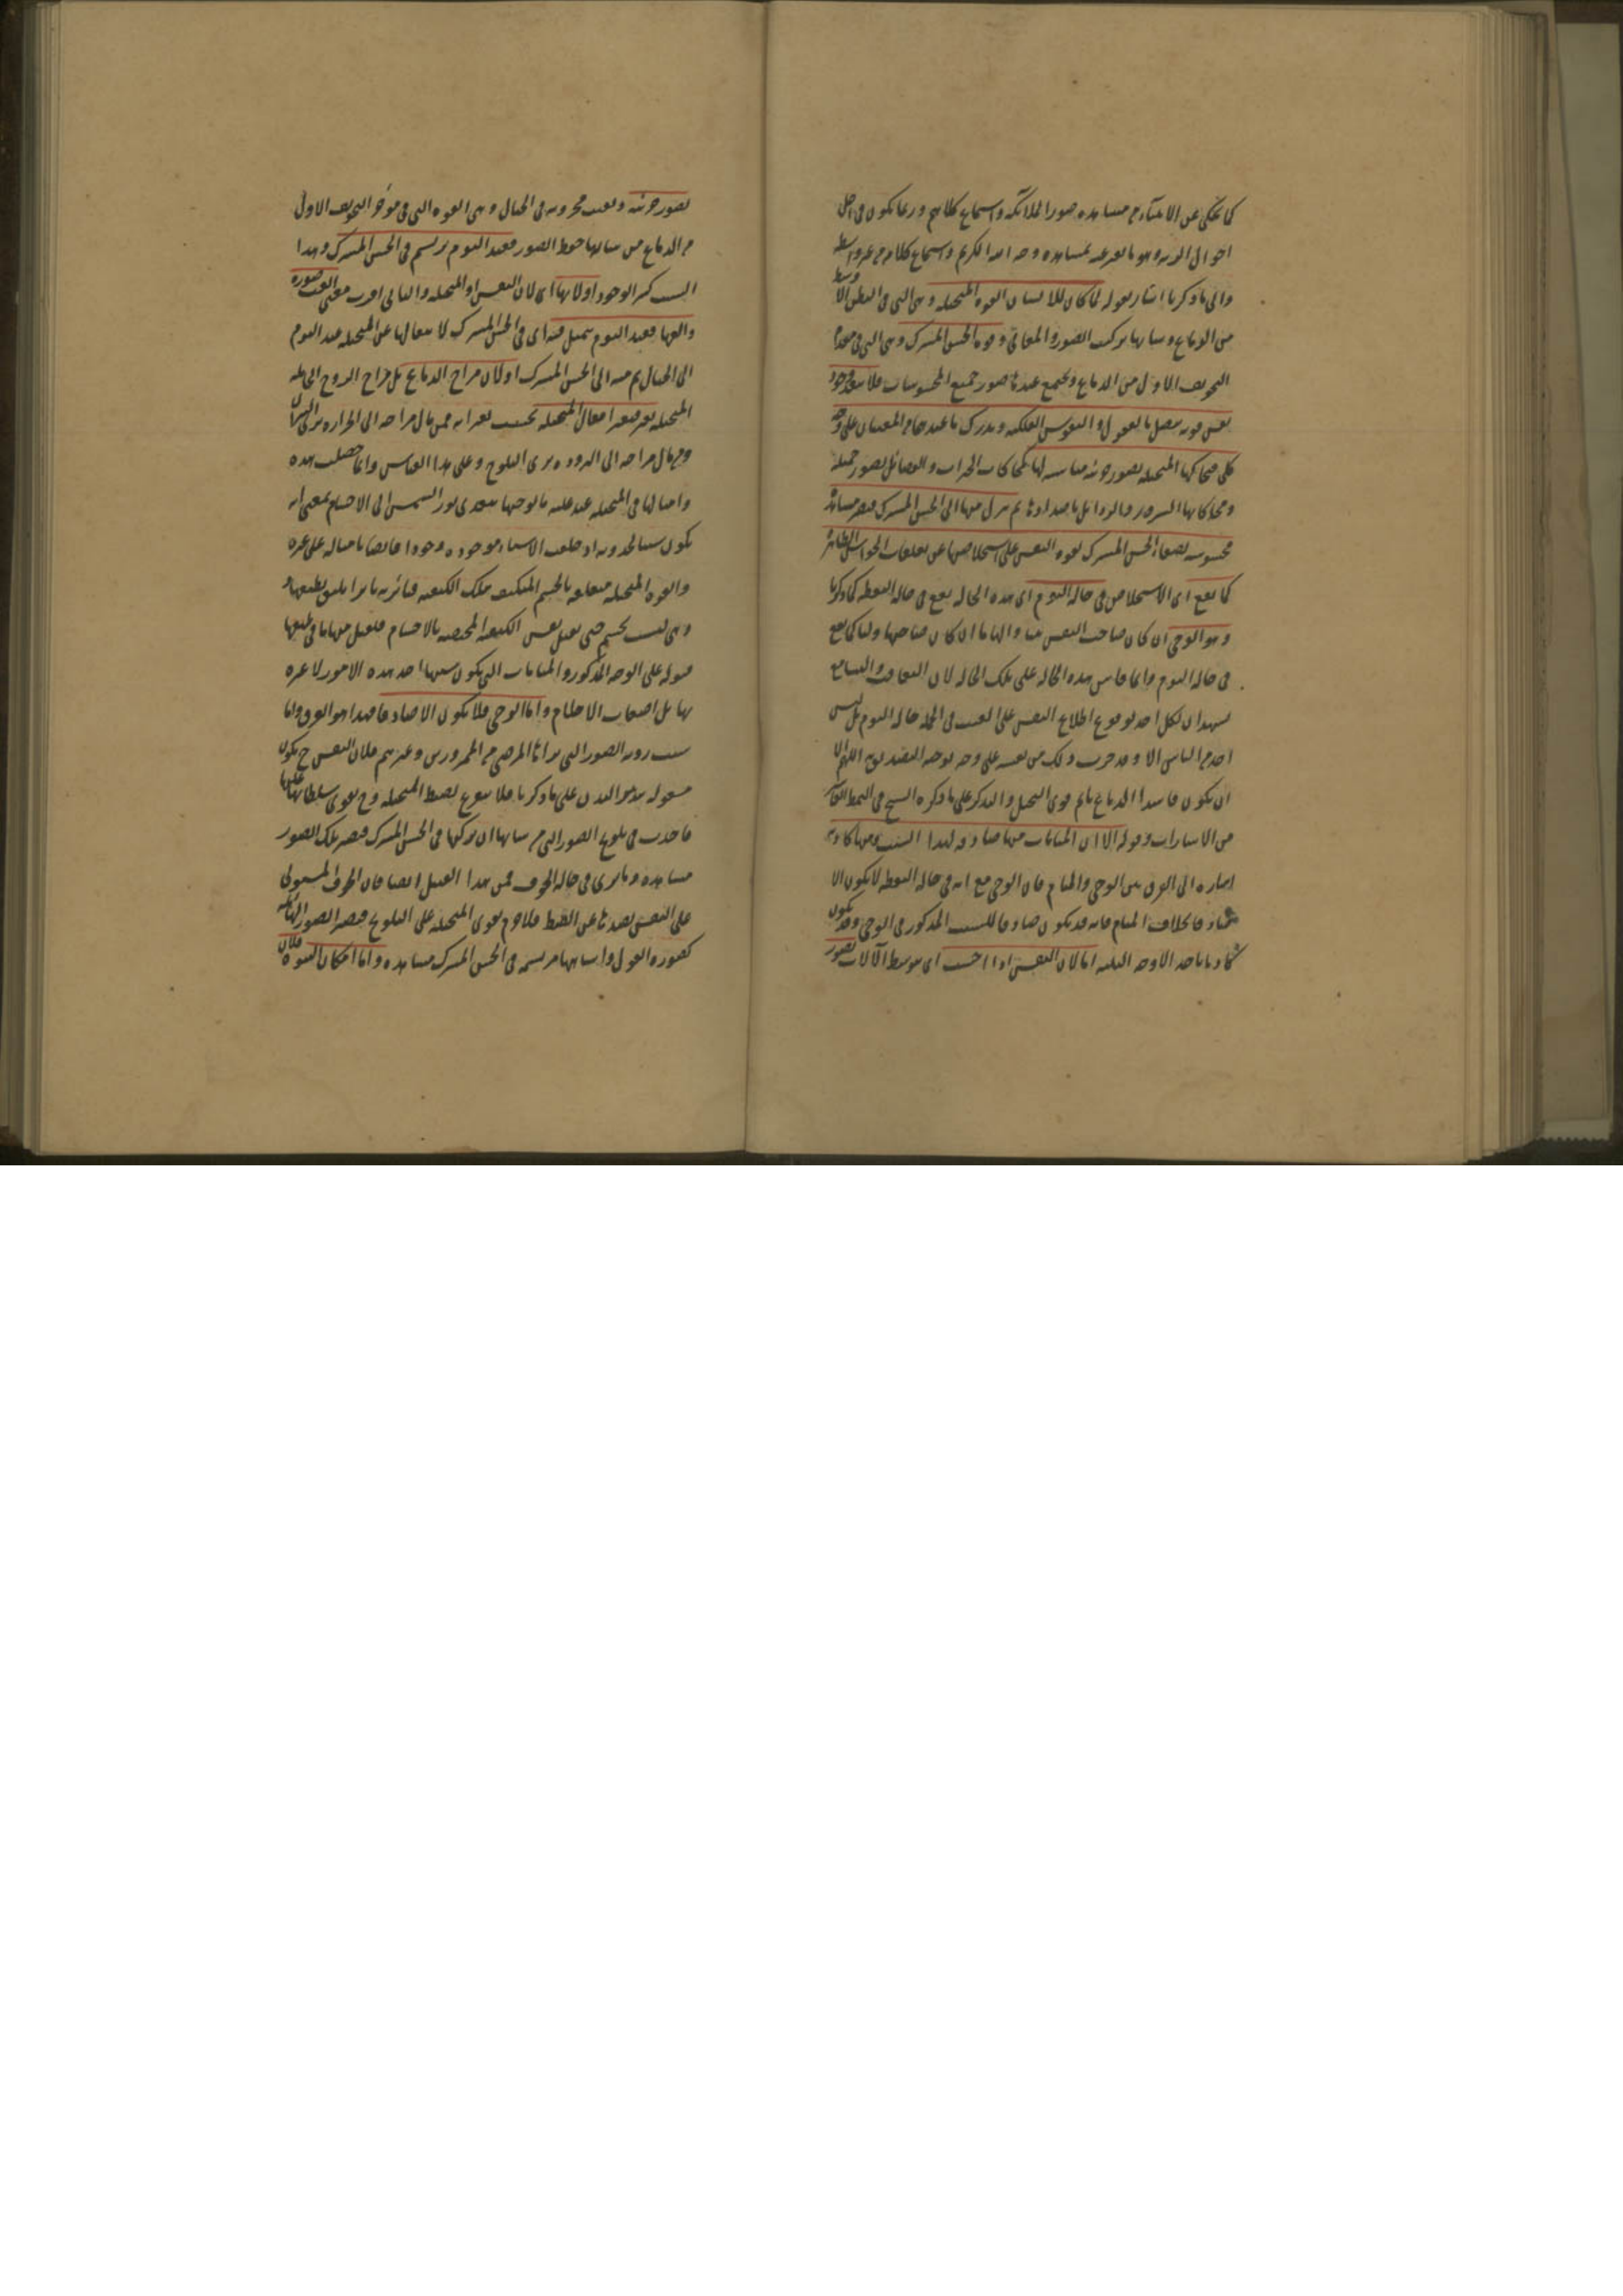 كما يحكى عن الانبياء من مشاهدة صور الملائكة واستماع كلامهم وربما يكون في اجل
احوال الرتبة وهو ما يعبر عنه بمشاهدة وجه الله الكريم واستماع كلامه من غير واسطة
والى ما ذكرنا اشار بقوله لما كان للانسان القوة المتخيلة وهي التي في البطن الاوسط
من الدماغ وشانها تركيب الصور والمعاني وقوة الحس المشترك وهي التي في مقدم
التجويف الاول من الدماغ ويجتمع عندها صور جميع المحسوسات فلا يبعد وجود
نفس قوية يتصل بالعقول والنفوس الفلكية ويدرك ما عندها من المغيبات على وجه
كلي فتحاكيها المتخيلة بصور جزئية مناسبة لها كمحاكات الخيرات والفضائل بصور جميلة
ومحاكاتها الشرور والرذائل باضدادها ثم تنزل منها الى الحس المشترك فتصير مشاهدة
محسوسة لصفاء الحس المشترك لقوة النفس على استخلاصها عن تعلقات الحواس الظاهرة
كما يقع اى الاستخلاص في حالة النوم اى هذه الحالة يقع في حالة اليقظة كما ذكرنا
وهو الوحي ان كان صاحب النفس نبيا والهاما ان كان صاحبها وليا كما يقع
في حالة النوم وانما قاس هذه الحالة على تلك الحالة لان التعارف والتسامع
يشهدان لكل احد لوقوع اطلاع النفس على الغيب في الجملة حالة النوم بل ليس
احد من الناس الا وقد جرب ذلك من نفسه على وجه يوجب التصديق به اللهم الا
ان يكون فاسد الدماغ نائم قوى التخيل والتذكر على ما ذكره الشيخ في النمط العاشر
من الاشارات وقوله الا ان المنامات منها صادقة لهذا السبب ومنها كاذبة
اشارة الى الفرق بين الوحي والمنام فان الوحي مع انه في حالة اليقظة لا يكون الا
صادقا بخلاف المنام فانه قد يكون صادقا للسبب المذكور في الوحي وقد يكون
كاذبا باحد الاوجه الثلثة اما لان النفس اذا احست اى بتوسط الآلات بصور
بصور جزئية وبقيت مخزونة في الخيال وهي القوة التي في مؤخر التجويف الاول
من الدماغ من شانها حفظ الصور فعند النوم يرتسم في الحس المشترك وهذا
السبب كثير الوجود اولانها اى لان النفس او المتخيلة والثاني اقرب معنى الفت صورة
والفها فعند النوم يتمثل فيه اى في الحس المشترك لانتقالها عن المتخيلة عند النوم
الى الخيال ثم منه الى الحس المشترك او لان مزاج الدماغ بل مزاج الروح الحاملة
المتخيلة يتغير فيتغير افعال المتخيلة بحسب تغيراته فمن مال مزاجه الى الحرارة يرى النيران
ومن مال مزاجه الى البرودة يرى الثلوج وعلى هذا القياس وانما حصلت هذه
وامثالها في المتخيلة عند غلبة ما يوجبها كما يتعدى نور الشمس الى الاجسام بمعنى انه
يكون سببا لحدوثه اذ خلقت الاشياء موجودة وجودا فائضا بامثاله على غيره
والقوة المتخيلة متعلقة بالجسم المتكيف بتلك الكيفية فتاثر به تاثرا يليق بطبعها
وهي ليست بجسم حتى تقبل نفس الكيفية المختصة بالاجسام فتقبل منها ما في طبعها
قبوله على الوجه المذكور والمنامات التي يكون سببها احد هذه الامور لا عبرة
بها بل اضغاث الاحلام واما الوحي فلا يكون الا صادقا فهذا هو الفرق واما
سبب روية الصور التي يراها المرضى من المحرورين وغيرهم فلان النفس ح يكون
مشغولة بتدبير البدن على ما ذكرنا فلا يتفرغ لضبط المتخيلة وح يقوى سلطانها
فاخذت في تلويح الصور التي من شانها ان تركبها في الحس المشترك فتصير تلك الصور
مشاهدة وما يرى في حالة الخوف فمن هذا القبيل ايضا فان الخوف المستولي
على النفس يصدها عن الضبط فلا جرم يقوى المتخيلة على التلويح فيصير الصور الهائلة
كصورة الغول وامثالها مرتسمة في الحس المشترك مشاهدة واما امكان النبوة فلان